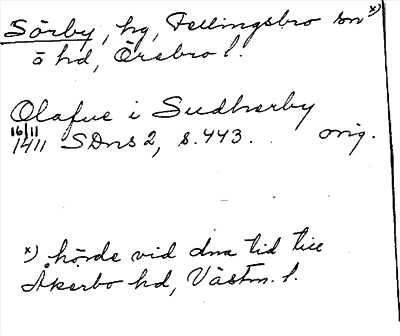 Sörby, hg, Fellingsbro sn x)
ö hd, Örebro l.
Olafue i Sudherby
16/11
1411 SDns 2, s. 443. orig.
x) hörde vid dna tid till
Åkerbo hd, Västm. l.